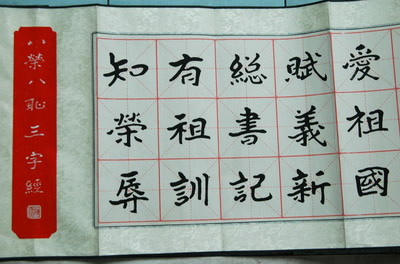 愛祖國
賦義新
総書記
有祖訓
知榮辱
八榮八恥三字經